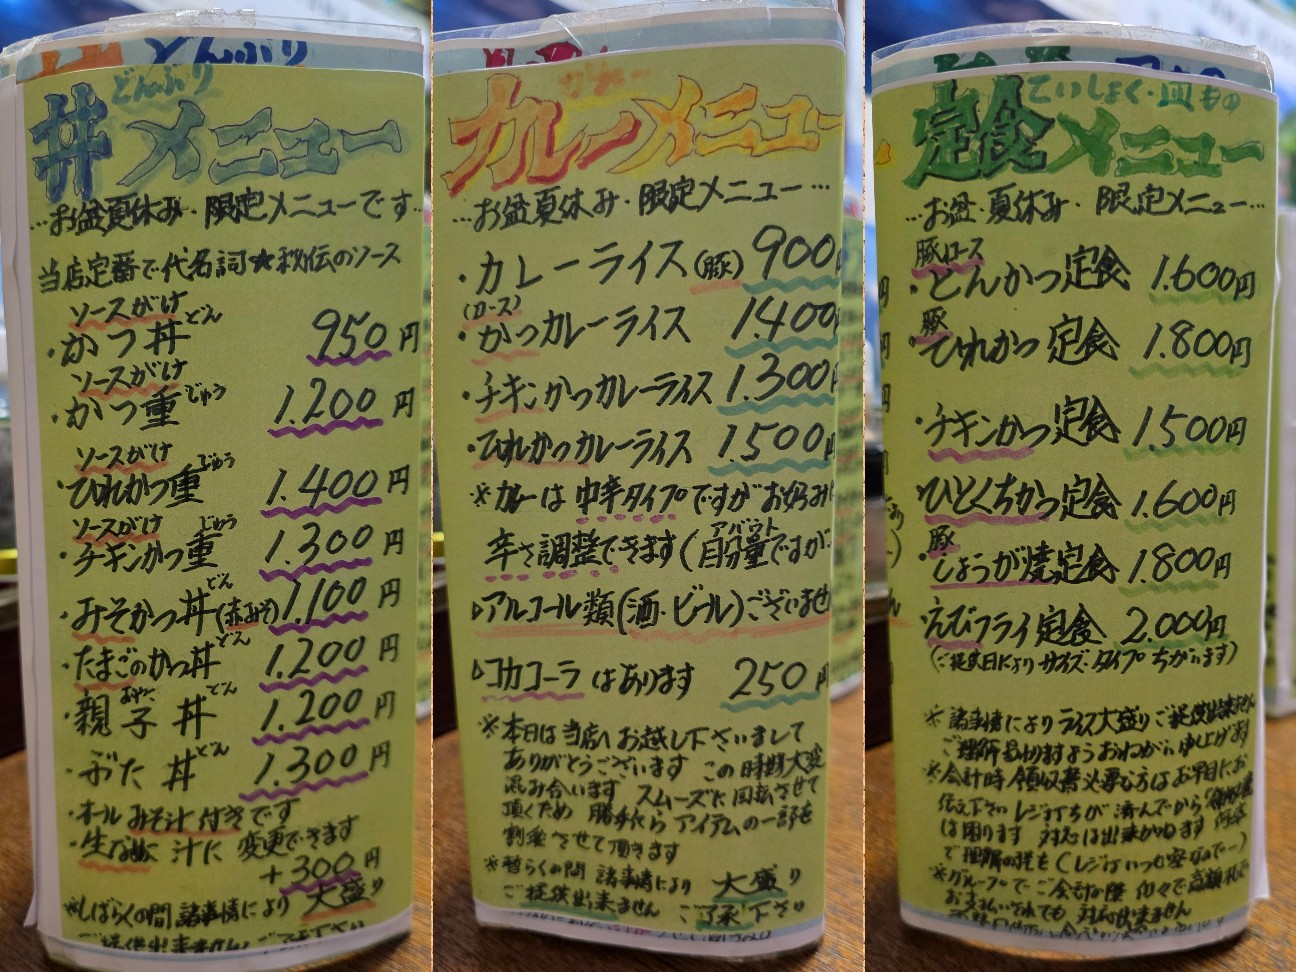 どんぶり
どんぶり
丼メニュー
…お盆夏休み・限定メニューです…
当店定番で代名詞★秘伝のソース
ソースがけ
・かつ丼どん 950円
ソースがけ
・かつ重じゅう 1.200円
ソースがけ
・ひれかつ重じゅう 1.400円
ソースがけ
・チキンかつ重じゅう 1.300円
・みそかつ丼どん(赤みそ) 1.100円
・たまごのかつ丼どん 1.200円
・親子丼おやこどん 1.200円
・ぶた丼どん 1.300円
・オールみそ汁付きです
・生なめこ汁に変更できます
+300円
※しばらくの間 諸事情により 大盛り
ご提供出来ません。ご了承下さい
カレーメニュー
…お盆夏休み・限定メニュー…
・カレーライス(豚) 900
(ロース)
・かつカレーライス 1.400
・チキンかつカレーライス 1.300円
・ひれかつカレーライス 1.500円
※カレーは中辛タイプですがお好みに
辛さ調整できます(自分量アバウトですが
▷アルコール類(酒・ビール)ございませ
▷コカコーラはあります 250円
※本日は当店へお越し下さいまして
ありがとうございます この時期大変
混み合います スムーズに回転させて
頂くため 勝手ながらアイテムの一部を
割愛させて頂きます
※暫らくの間 諸事情により 大盛り
ご提供出来ません ご了承下さい
ていしょく・皿もの
定食メニュー
…お盆・夏休み・限定メニュー…
豚ロース
・とんかつ定食 1.600円
豚
・ひれかつ定食 1.800円
・チキンかつ定食 1.500円
・ひとくちかつ定食 1.600円
豚
・しょうが焼定食 1.800円
・えびフライ定食 2.000円
(ご提供日によりサイズ・タイプちがいます)
※諸事情によりライス大盛りご提供出来ません
ご理解賜りますようおねがい申し上げます
※会計時 領収書必要な方はお早目にお
伝え下さい レジ打ちが済んでから
は困ります 対応は出来かねます 何卒
ご理解の程を(レジはいつも
※グループでご会計の際 個々で高額札で
お支払いされても 対応出来ません